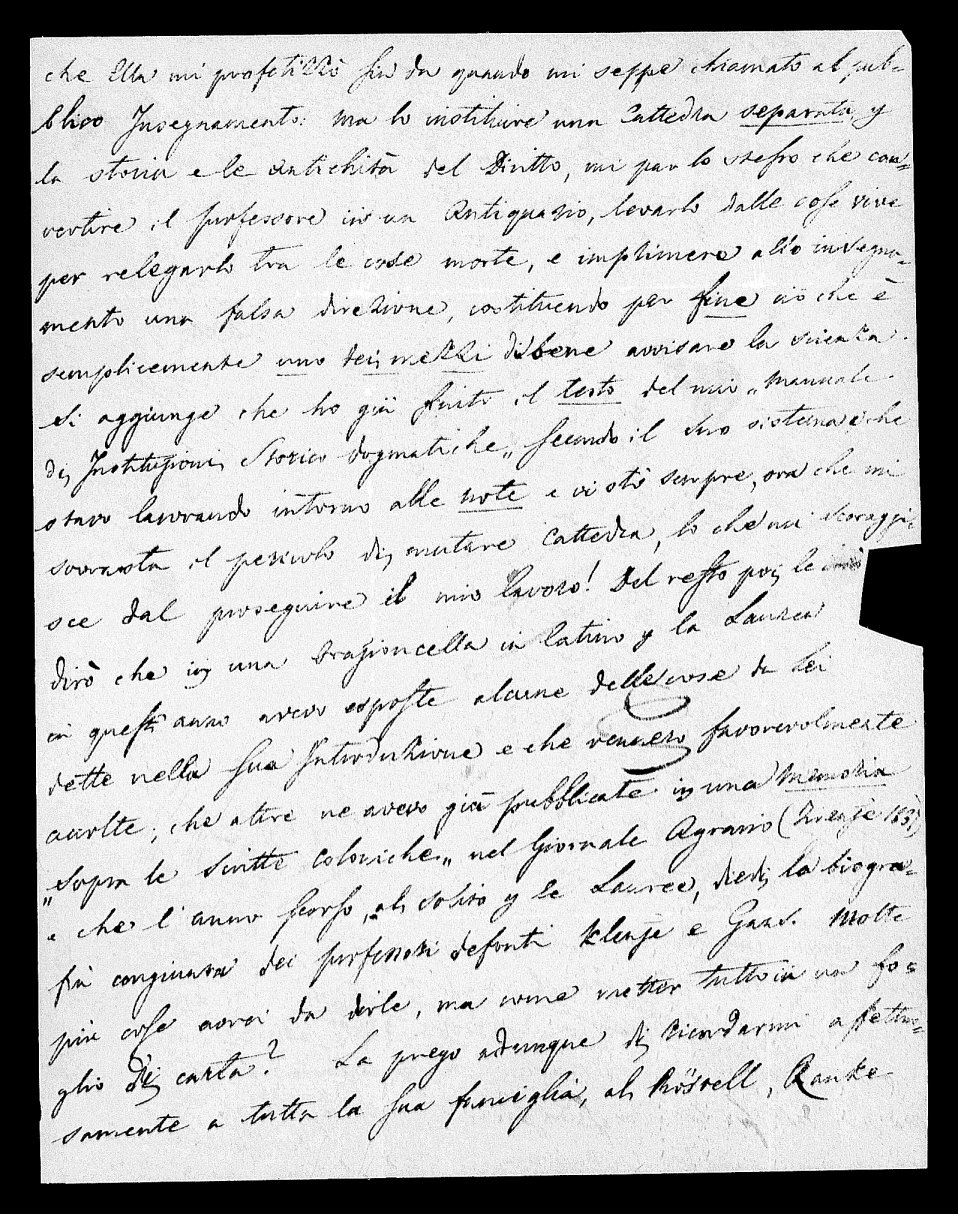 che Ella mi profetizzò fin da quando mi seppe chiamato al pub-
blico Insegnamento: ma lo instituire una Cattedra separata p
la storia e le antichità del Diritto, mi par lo stesso che con-
vertire il professore in un Antiquario, levarlo dalle cose vive
per relegarlo tra le cose morte, e imprimere allo insegna-
mento una falsa direzione, costituendo per fine ciò che è
semplicemente uno dei mezzi di bene avvisare la scienza.
Si aggiunge che ho già finito il testo del mio „Manuale
di Instituzioni Storico dogmatiche„ secondo il suo sistema e che
stavo lavorando intorno alle note e vi stò sempre, ora che mi
sovrasta il pericolo di mutare Cattedra, lo che mi scoraggi-
sce dal proseguire il mio lavoro! Del resto poi le
dirò che in una orazioncella in latino p la Laurea
in quest' anno avevo esposte alcune delle cose da Lei
dette nella sua Introduzione e che vennero favorevolmente
accolte; che altre ne avevo già pubblicate in una Memoria
„sopra le scritte coloniche„ nel Giornale Agrario (Firenze 183
e che l'anno scorso, al solito p le Lauree, diedi la biogra-
fia congiunta dei professori defonti Klenze e Gans. Molte
più cose avrei da dirle, ma come metter tutto in un fo-
glio di carta? La prego adunque di ricordarmi affettuo-
samente a tutta la sua famiglia, al Röstell, Ranke